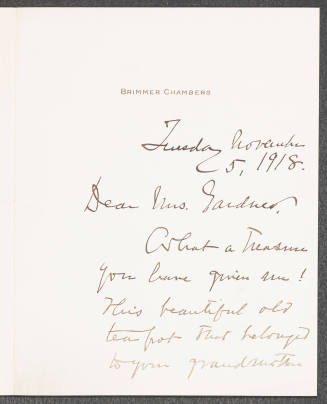 BRIMMER CHAMBERS
Tuesday November
5, 1918.
Dear Mrs. Gardner,
What a Treasure
you have given me!
This beautiful old
teapot that belonged
to your grandmother